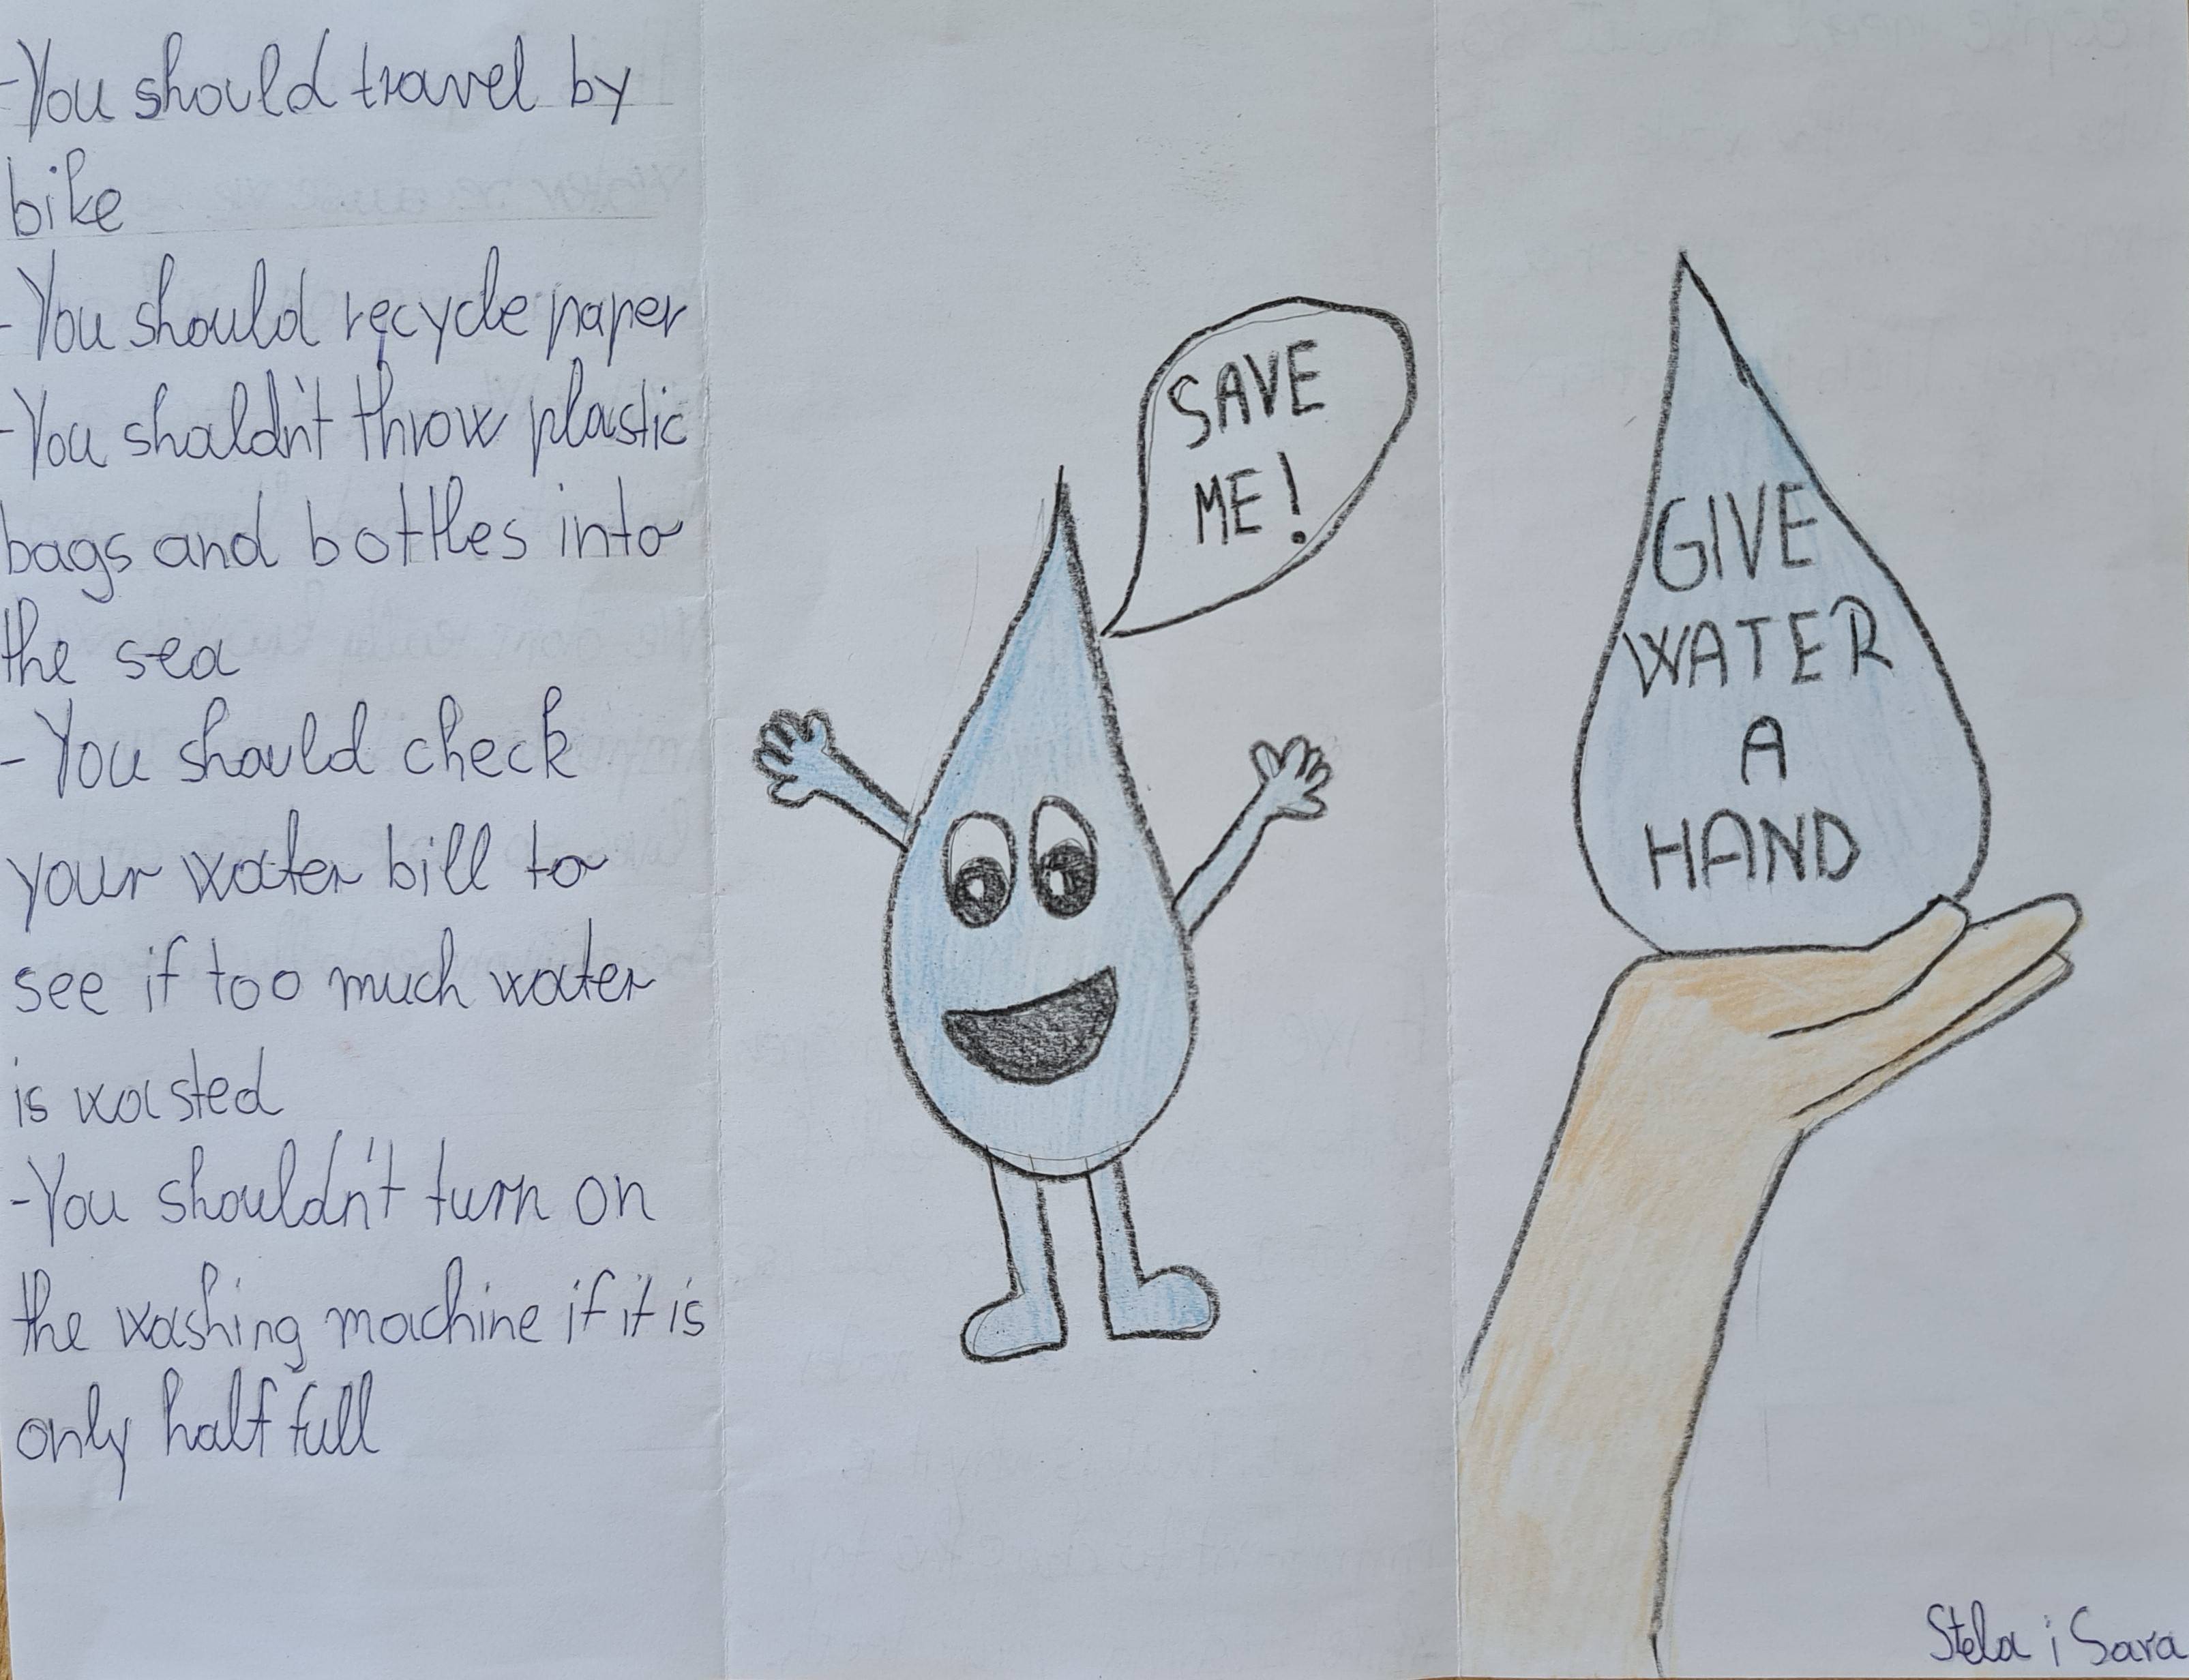 -You should travel by
bike
-You should recycle paper
-You shaldn't throw plastic
bags and bottles into
the sea
-You should check
your water bill to
see if too much water
is wasted
-You shouldn't turn on
the washing machine if it is
only half full
SAVE
ME!
GIVE
WATER
A
HAND
Stela i Sara